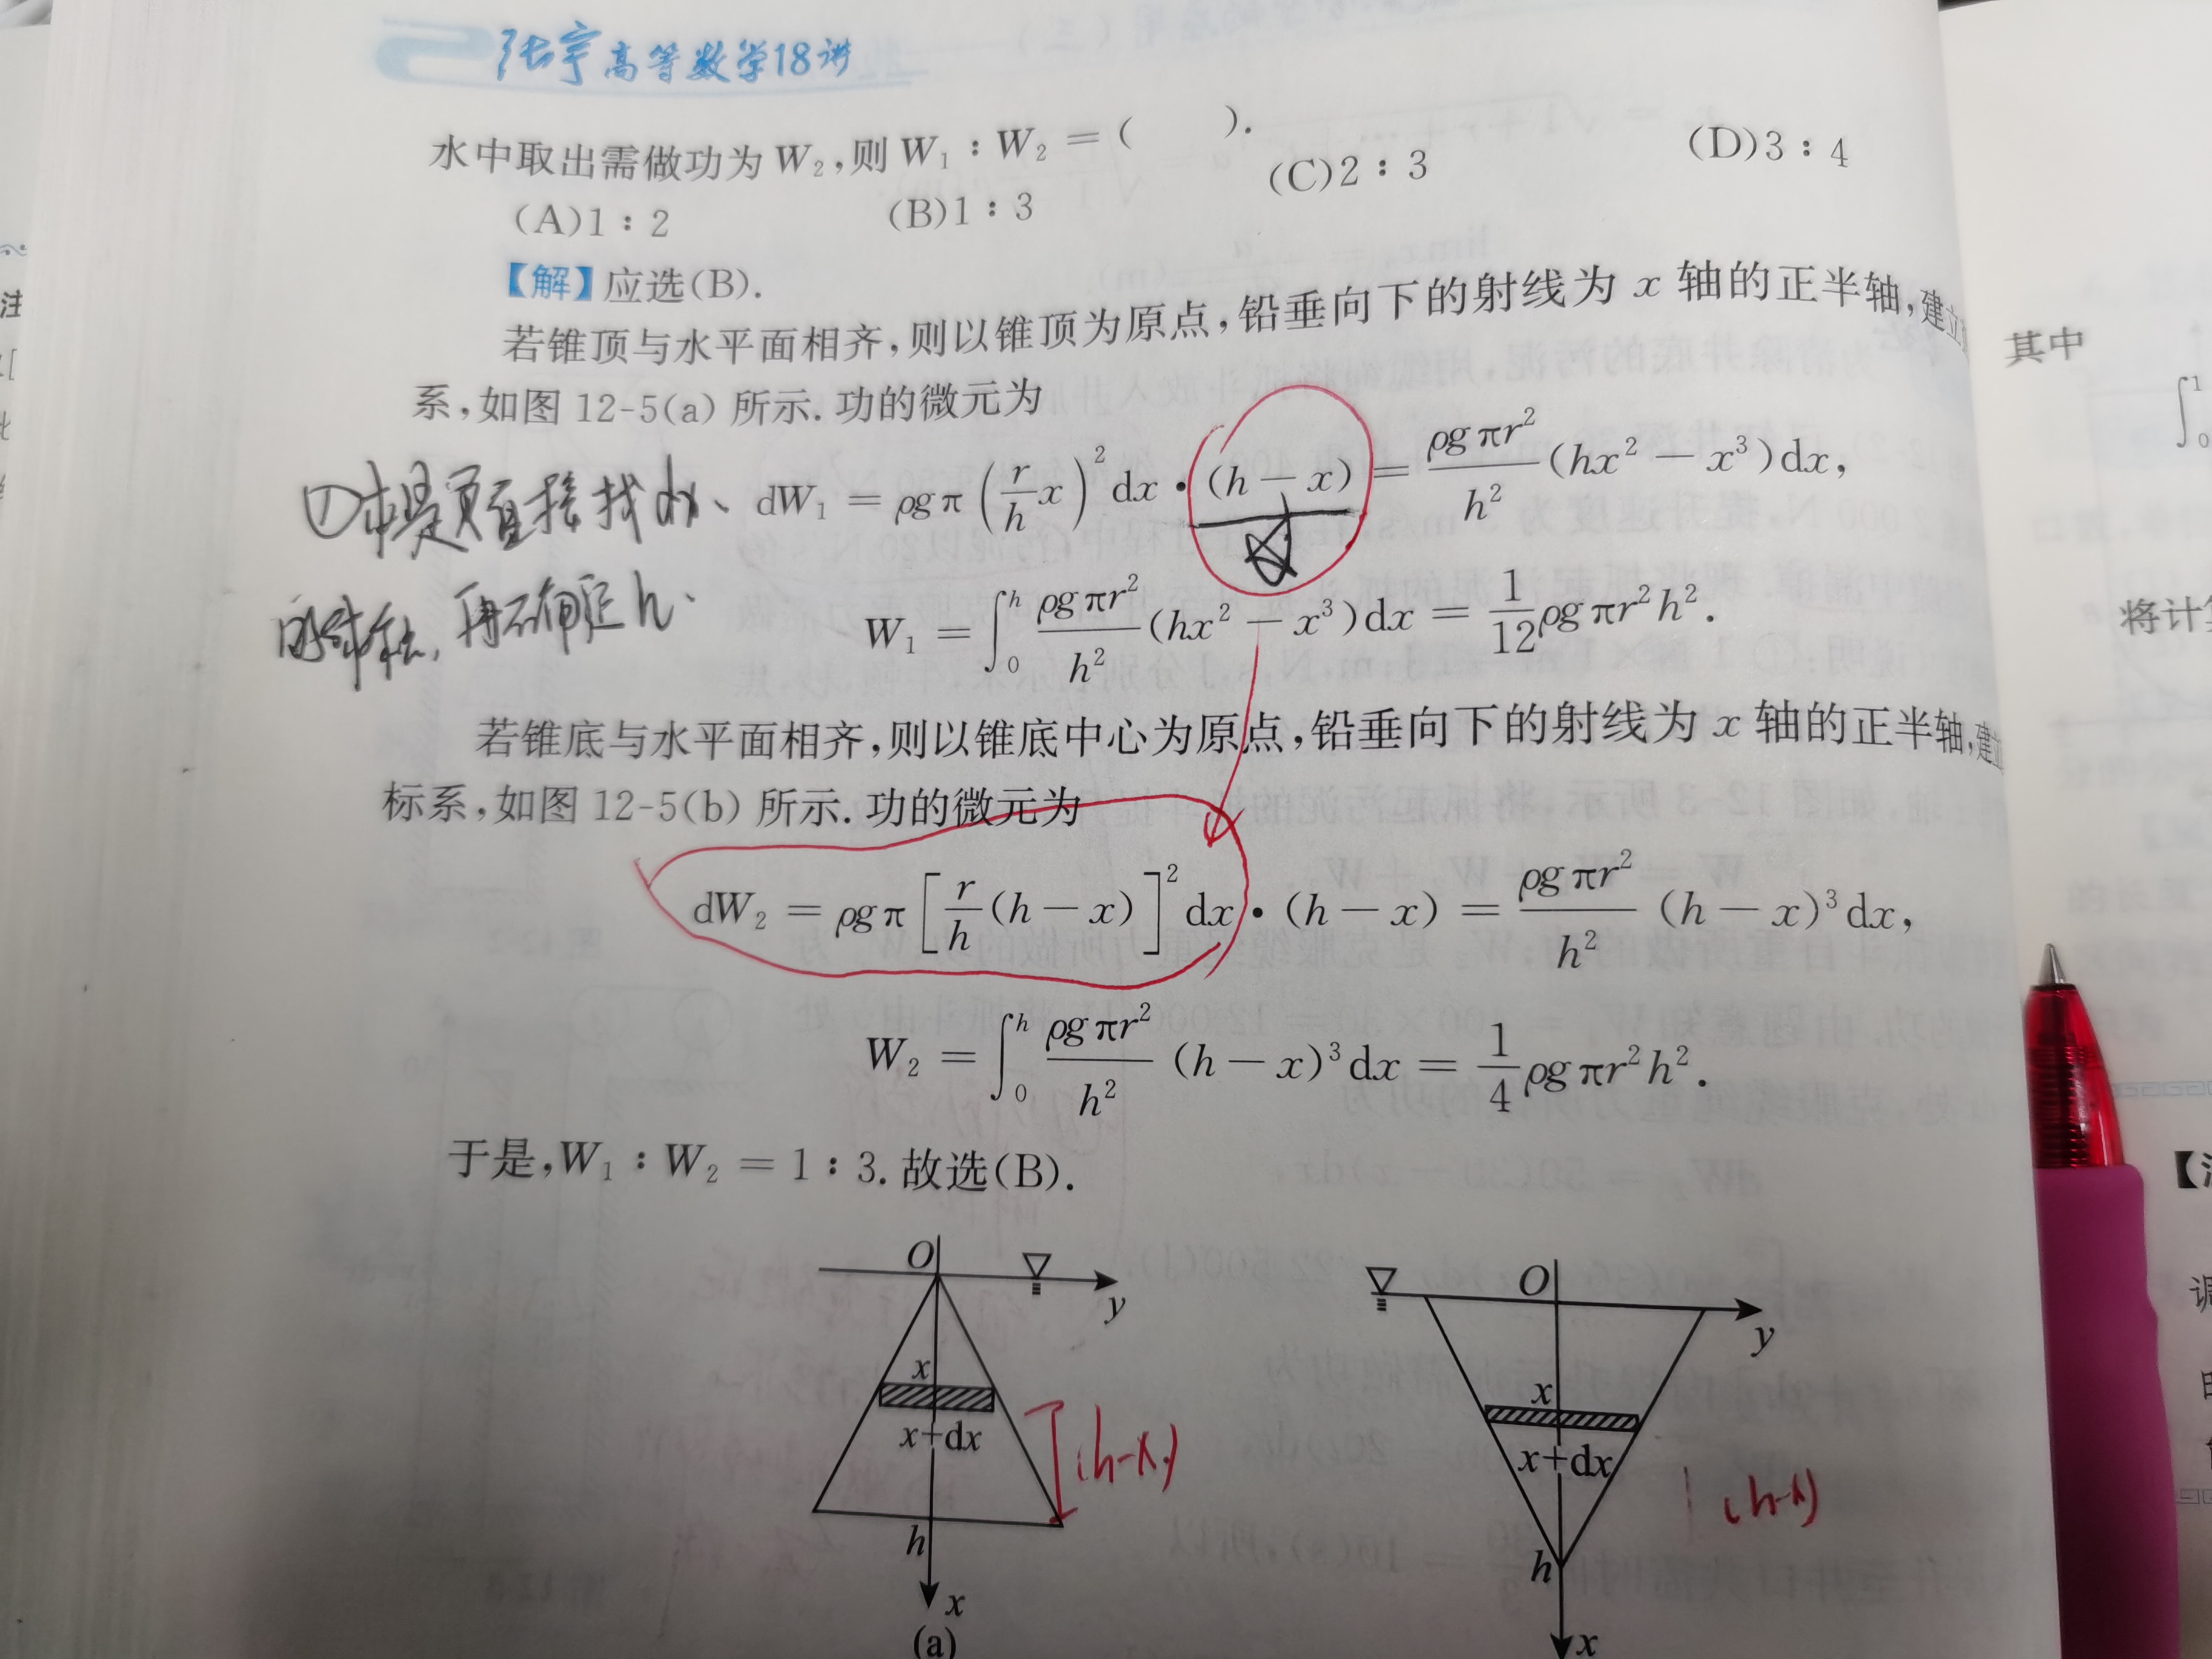 张宇高等数学18讲
水中取出需做功为 W₂,则 W₁ : W₂ = ( ).
(A)1 : 2 (B)1 : 3 (C)2 : 3 (D)3 : 4
【解】应选(B).
若锥顶与水平面相齐,则以锥顶为原点,铅垂向下的射线为 x 轴的正半轴,建立
系,如图 12-5(a) 所示. 功的微元为
dW₁ = ρgπ(r/h x)²dx · (h − x) = ρgπr²/h² (hx² − x³)dx,
W₁ = ∫₀ʰ ρgπr²/h² (hx² − x³)dx = 1/12 ρgπr²h².
再确定 h.
若锥底与水平面相齐,则以锥底中心为原点,铅垂向下的射线为 x 轴的正半轴,建立
标系,如图 12-5(b) 所示. 功的微元为
dW₂ = ρgπ[r/h (h − x)]²dx · (h − x) = ρgπr²/h² (h − x)³dx,
W₂ = ∫₀ʰ ρgπr²/h² (h − x)³dx = 1/4 ρgπr²h².
于是,W₁ : W₂ = 1 : 3. 故选(B).
O y
x
x+dx
(h-x)
h
x
(a)
O y
x
x+dx
(h-x)
h
x
其中
∫₀¹
将计
【
调
注